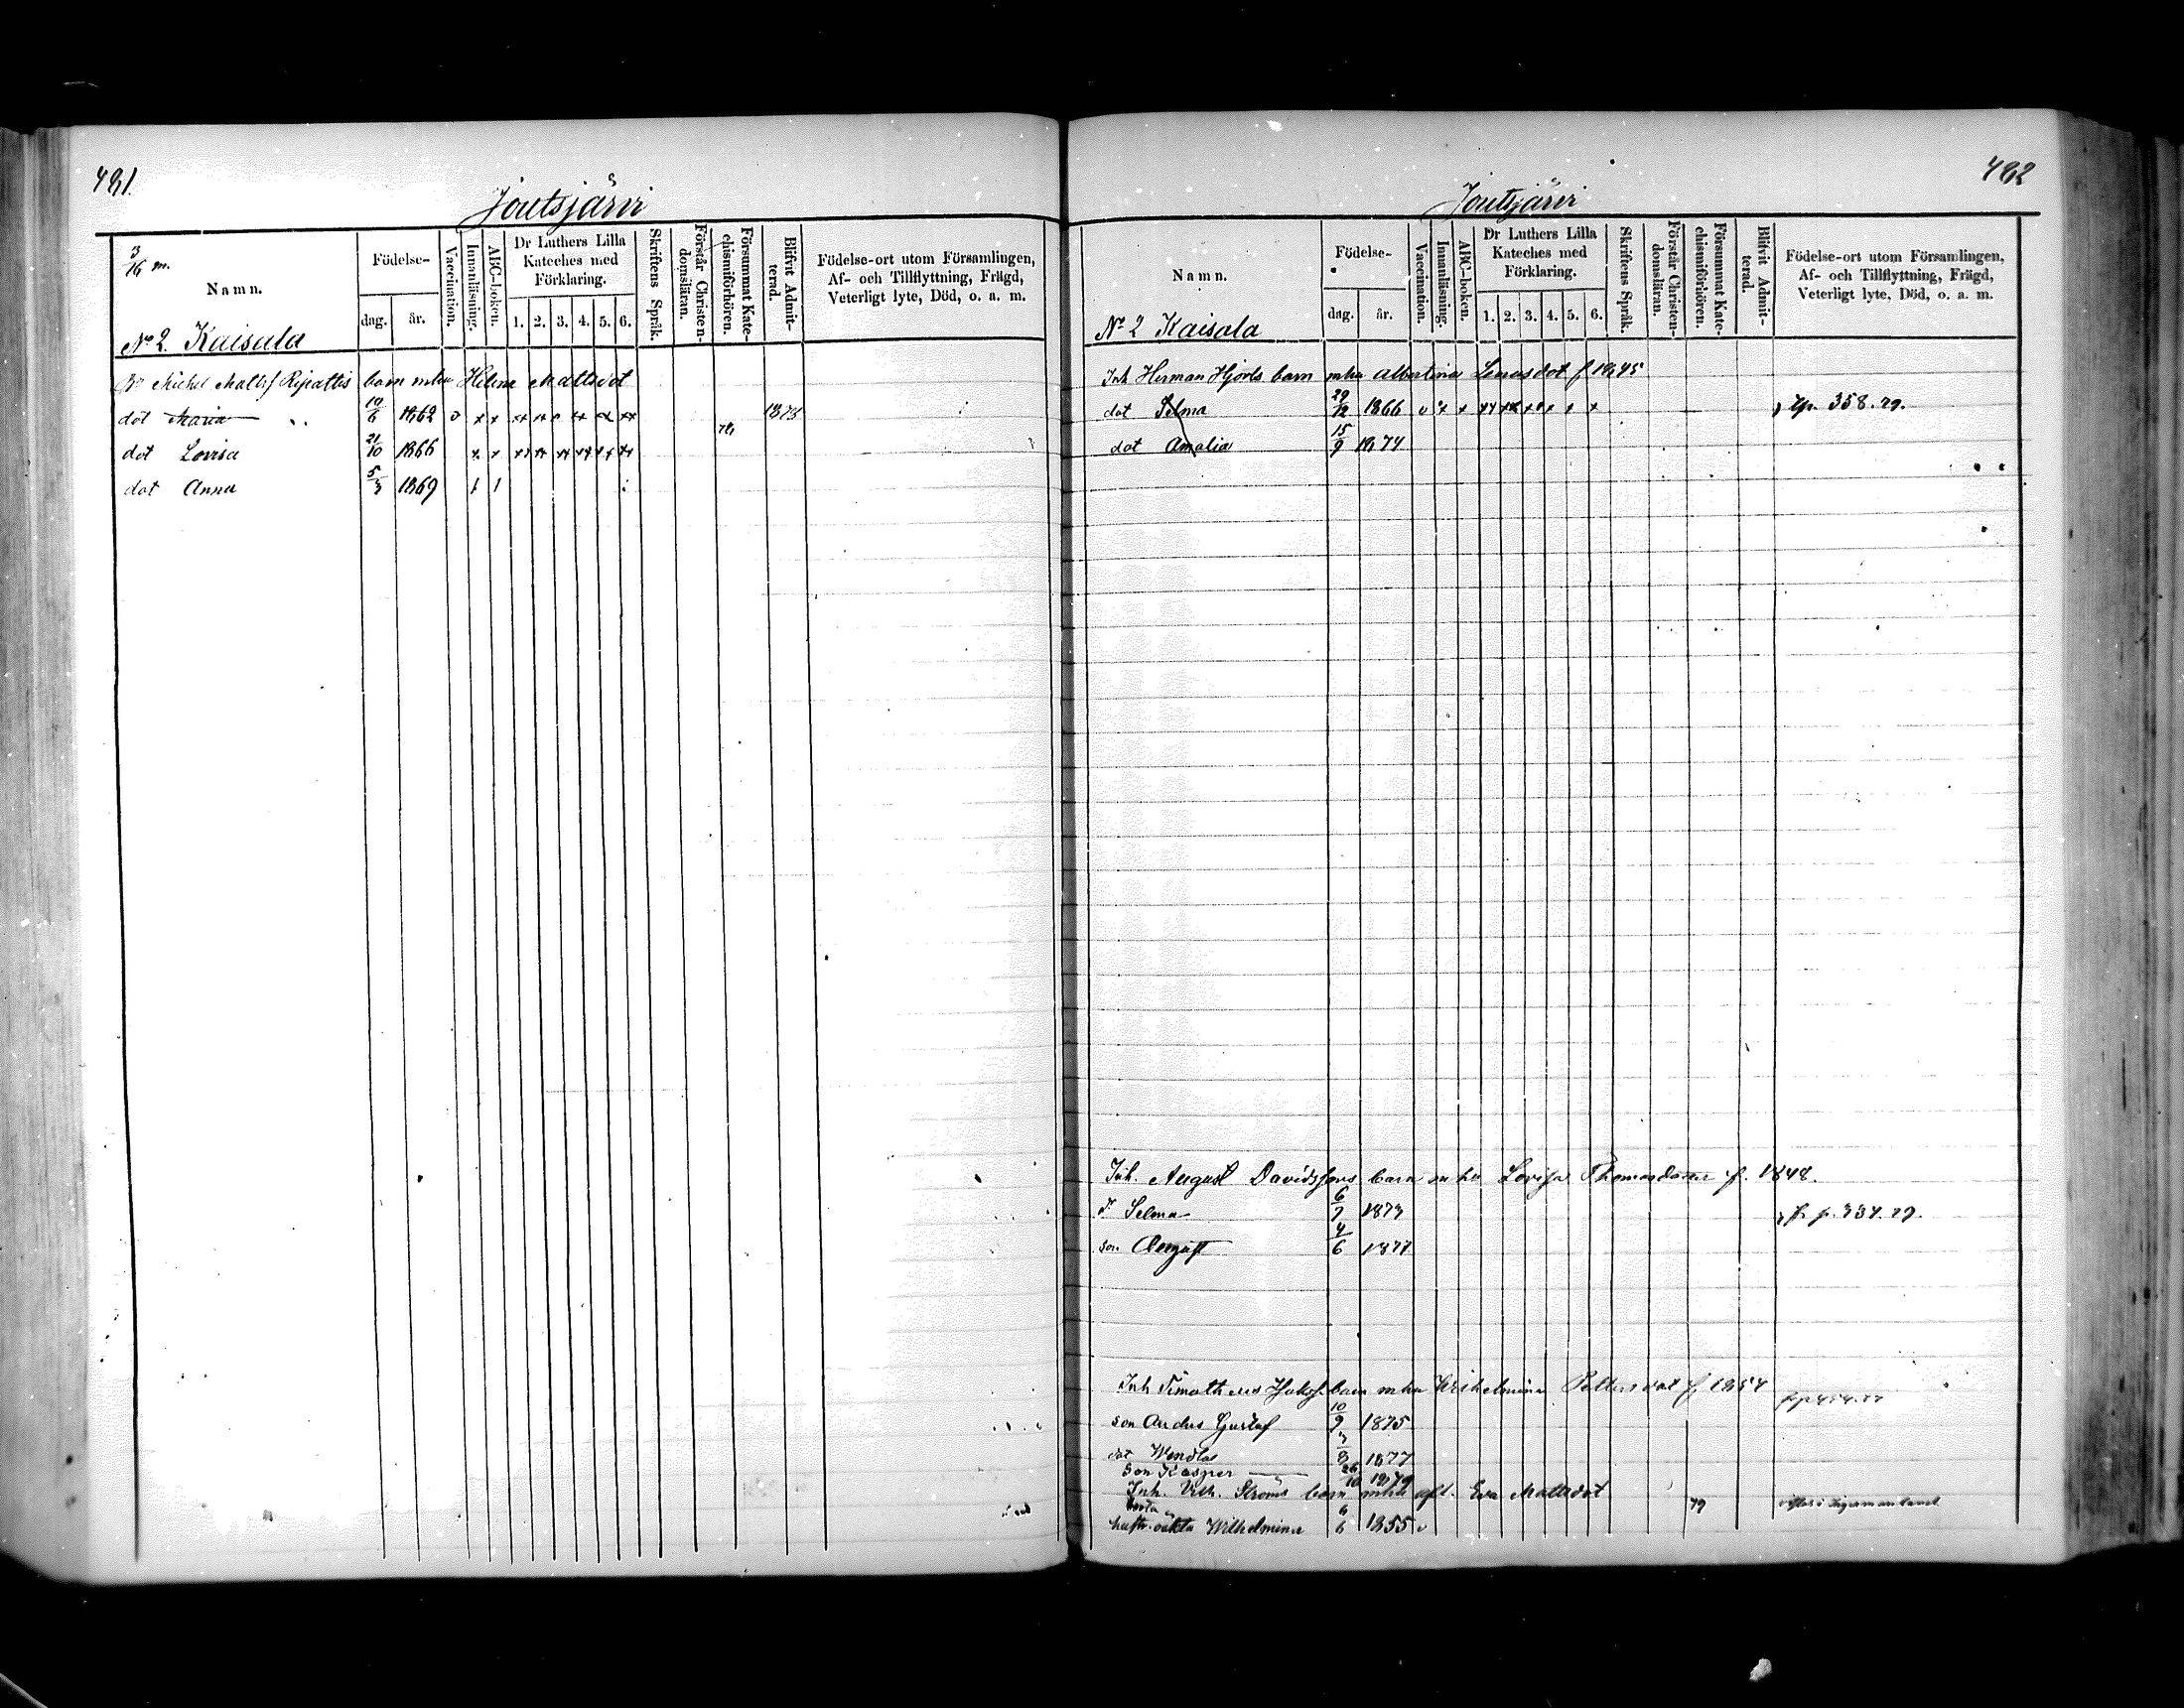 481.
Joutsjärvi
3/16 m.
Namn.
Födelse-
dag.
år.
Vaccination.
Innanläsning.
ABC-boken.
Dr Luthers Lilla
Kateches med
Förklaring.
1. 2. 3. 4. 5. 6.
Skriftens Språk.
Förstår Christen-
domsläran.
Försummat Kate-
chismiförhören.
Blifvit Admit-
terad.
Födelse-ort utom Församlingen,
Af- och Tillflyttning, Frägd,
Veterligt lyte, Död, o. a. m.
No 2. Kaisala
Michel Mattsf barn mhu Helena Mattsdot
dot Maria 1862 1878
dot Lovisa 21/10 1866
dot Anna 5/3 1869
482
Joutsjärvi
Namn.
Födelse-
dag.
år.
Vaccination.
Innanläsning.
ABC-boken.
Dr Luthers Lilla
Kateches med
Förklaring.
1. 2. 3. 4. 5. 6.
Skriftens Språk.
Förstår Christen-
domsläran.
Försummat Kate-
chismiförhören.
Blifvit Admit-
terad.
Födelse-ort utom Församlingen,
Af- och Tillflyttning, Frägd,
Veterligt lyte, Död, o. a. m.
No 2 Kaisala
Inh Herman Hjorts barn mhu Albertina f 1845
dot Selma 29/12 1866 p. 358. 79.
dot Amalia 15/9 1874
Inh. August Davidssons barn mhu Lovisa Thomasdotter f. 1848.
d. Selma 6/7 1873 p. 334. 79.
son August 4/6 1877
Inh Timotheus barn mhu Wilhelmina Pettersdot f 1854
son Anders Gustaf 10/9 1875
dot Wendla 3/8 1877
son Kasper 26/10 1879
Inh. Vilh. Ströms barn mhu afl. Eva Mattsdot
Wilhelmina 6/6 1855 79